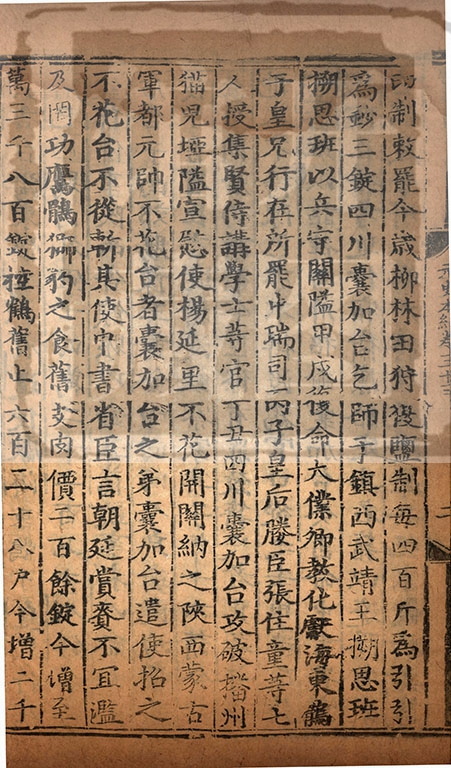 印制敕罷今歳柳林田狩復鹽制每四百斤爲引引
爲鈔三錠四川囊加台乞師于鎮西武靖王搠思班
搠思班以兵守關隘甲戌復命太僕卿教化獻海東鶻
于皇兄行在所罷中瑞司丙子皇后媵臣張住童等七
人授集賢侍講學士等官丁丑四川囊加台攻破播州
猫兒埡隘宣慰使楊延里不花開關納之陝西蒙古
軍都元帥不花台者囊加台之弟囊加台遣使招之
不花台不從斬其使中書省臣言朝廷賞賚不宜濫
及罔功鷹鶻獅豹之食舊支肉價二百餘錠今增至
萬三千八百錠控鶴舊止六百二十八戶今增二千
元史本紀卷三十三
二